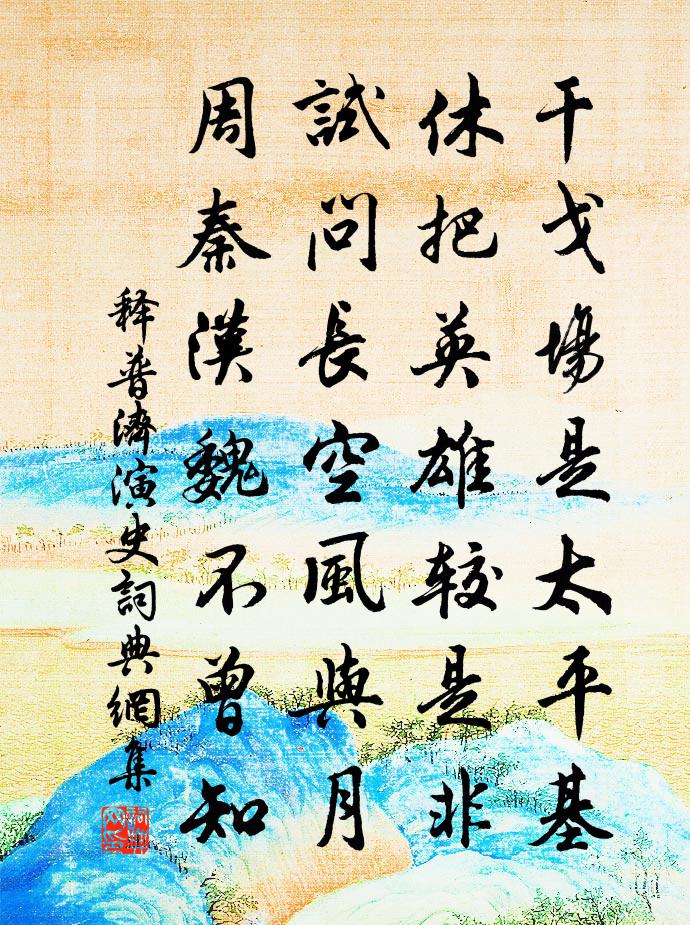 干戈場是太平基
休把英雄較是非
試問長空風與月
周秦漢魏不曾知
释普濟演史詞典網集